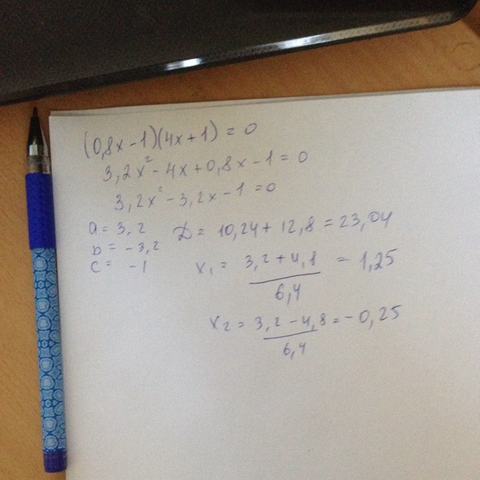 (0,8x-1)(4x+1)=0
3,2x²-4x+0,8x-1=0
3,2x²-3,2x-1=0
a=3,2
b=-3,2
c=-1
D=10,24+12,8=23,04
x₁=(3,2+4,8)/6,4=1,25
x₂=(3,2-4,8)/6,4=-0,25